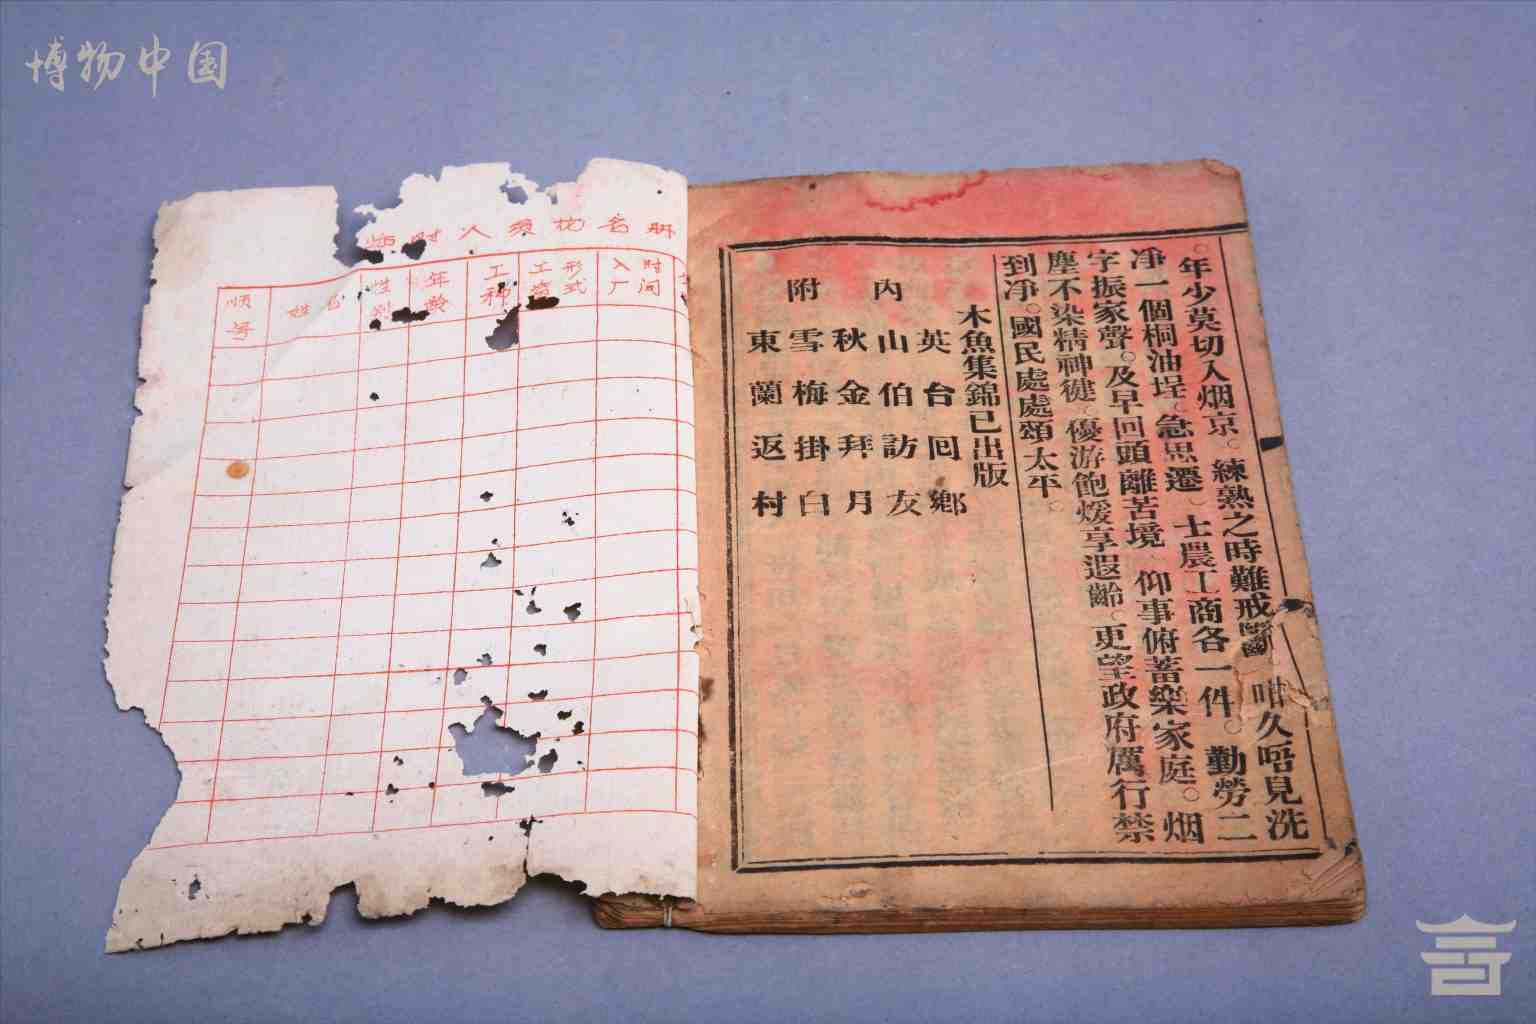 博物中国
临时人员花名册
顺号
姓名
性别
年龄
工种
工资形式
入厂时间
。年少莫切入烟京。練熟之時難戒斷 咁久唔見洗
净一個桐油埕。急思遷 士農工商各一件。勤勞二
字振家聲。及早回頭離苦境 仰事俯蓄樂家庭。烟
塵不染精神健。優游飽煖享遐齡。更望政府厲行禁
到净。國民處處頌太平。
木魚集錦已出版
英台回鄉
内山伯訪友
秋金拜月
附雪梅掛白
東蘭返村